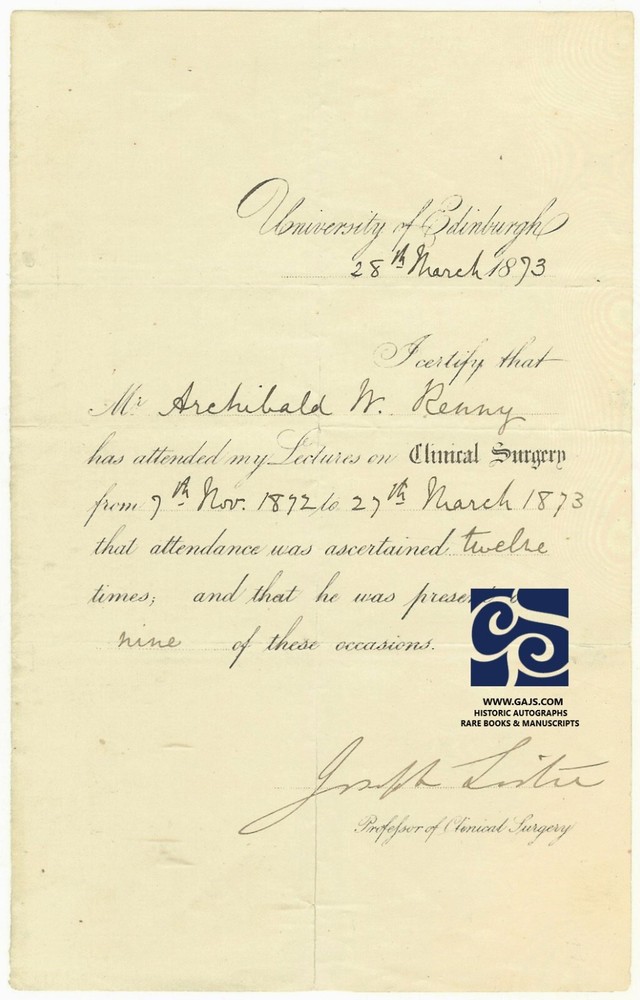 University of Edinburgh
28th March 1873
I certify that
Mr Archibald W. Renny
has attended my Lectures on Clinical Surgery
from 7th Nov. 1872 to 27th March 1873
that attendance was ascertained twelve
times; and that he was present
nine of these occasions.
WWW.GAJS.COM
HISTORIC AUTOGRAPHS
RARE BOOKS & MANUSCRIPTS
Joseph Lister
Professor of Clinical Surgery